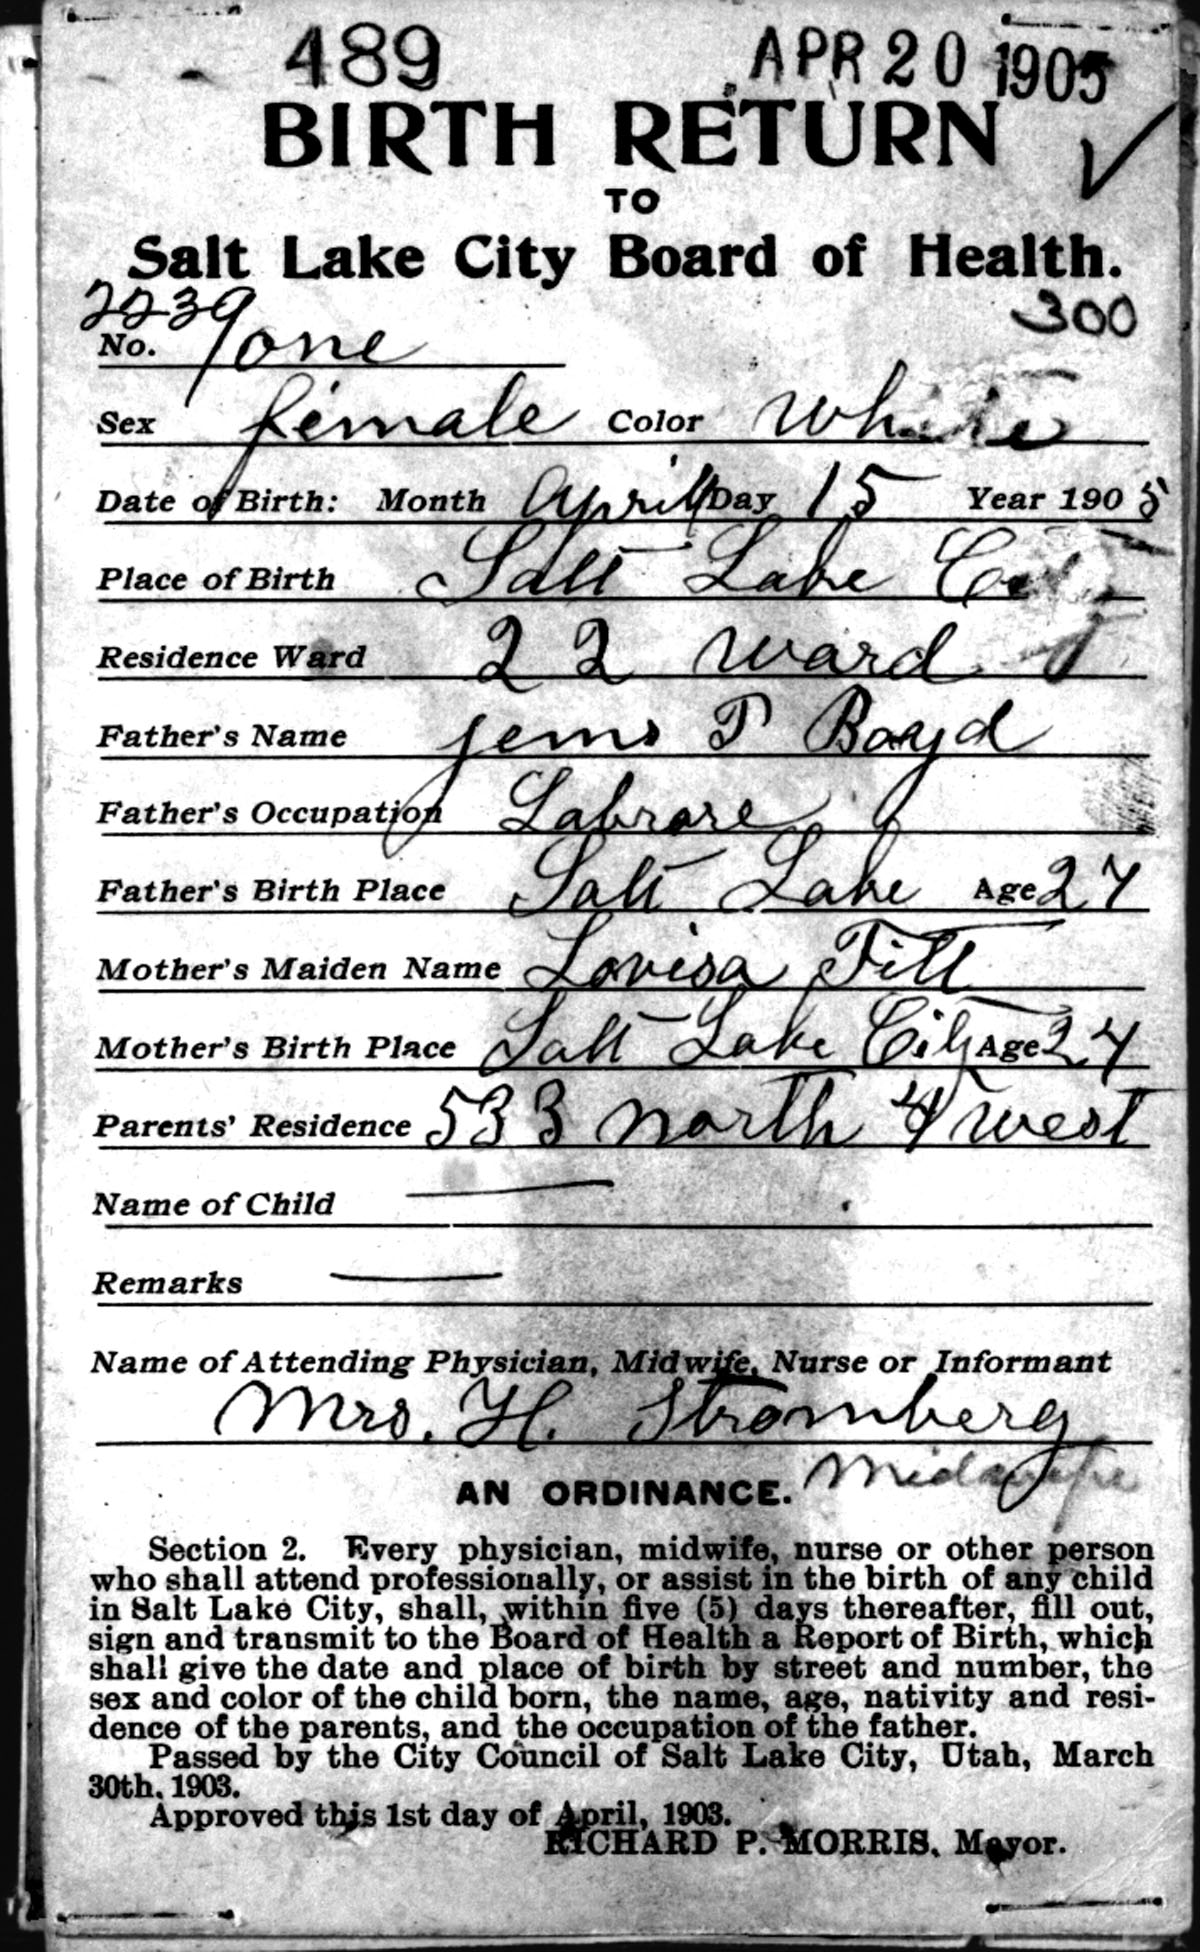 489 APR 20 1905
BIRTH RETURN
TO
Salt Lake City Board of Health.
2239 300
No. one
Sex female Color White
Date of Birth: Month April Day 15 Year 1905
Place of Birth Salt Lake City
Residence Ward 22 ward
Father's Name Jems P Boyd
Father's Occupation Labrore
Father's Birth Place Salt Lake Age 27
Mother's Maiden Name Lovisa Titt
Mother's Birth Place Salt Lake City Age 24
Parents' Residence 533 north 4 west
Name of Child —
Remarks —
Name of Attending Physician, Midwife, Nurse or Informant
Mrs. H. Stromberg
Midwife
AN ORDINANCE.
Section 2. Every physician, midwife, nurse or other person
who shall attend professionally, or assist in the birth of any child
in Salt Lake City, shall, within five (5) days thereafter, fill out,
sign and transmit to the Board of Health a Report of Birth, which
shall give the date and place of birth by street and number, the
sex and color of the child born, the name, age, nativity and resi-
dence of the parents, and the occupation of the father.
Passed by the City Council of Salt Lake City, Utah, March
30th, 1903.
Approved this 1st day of April, 1903.
RICHARD P. MORRIS, Mayor.